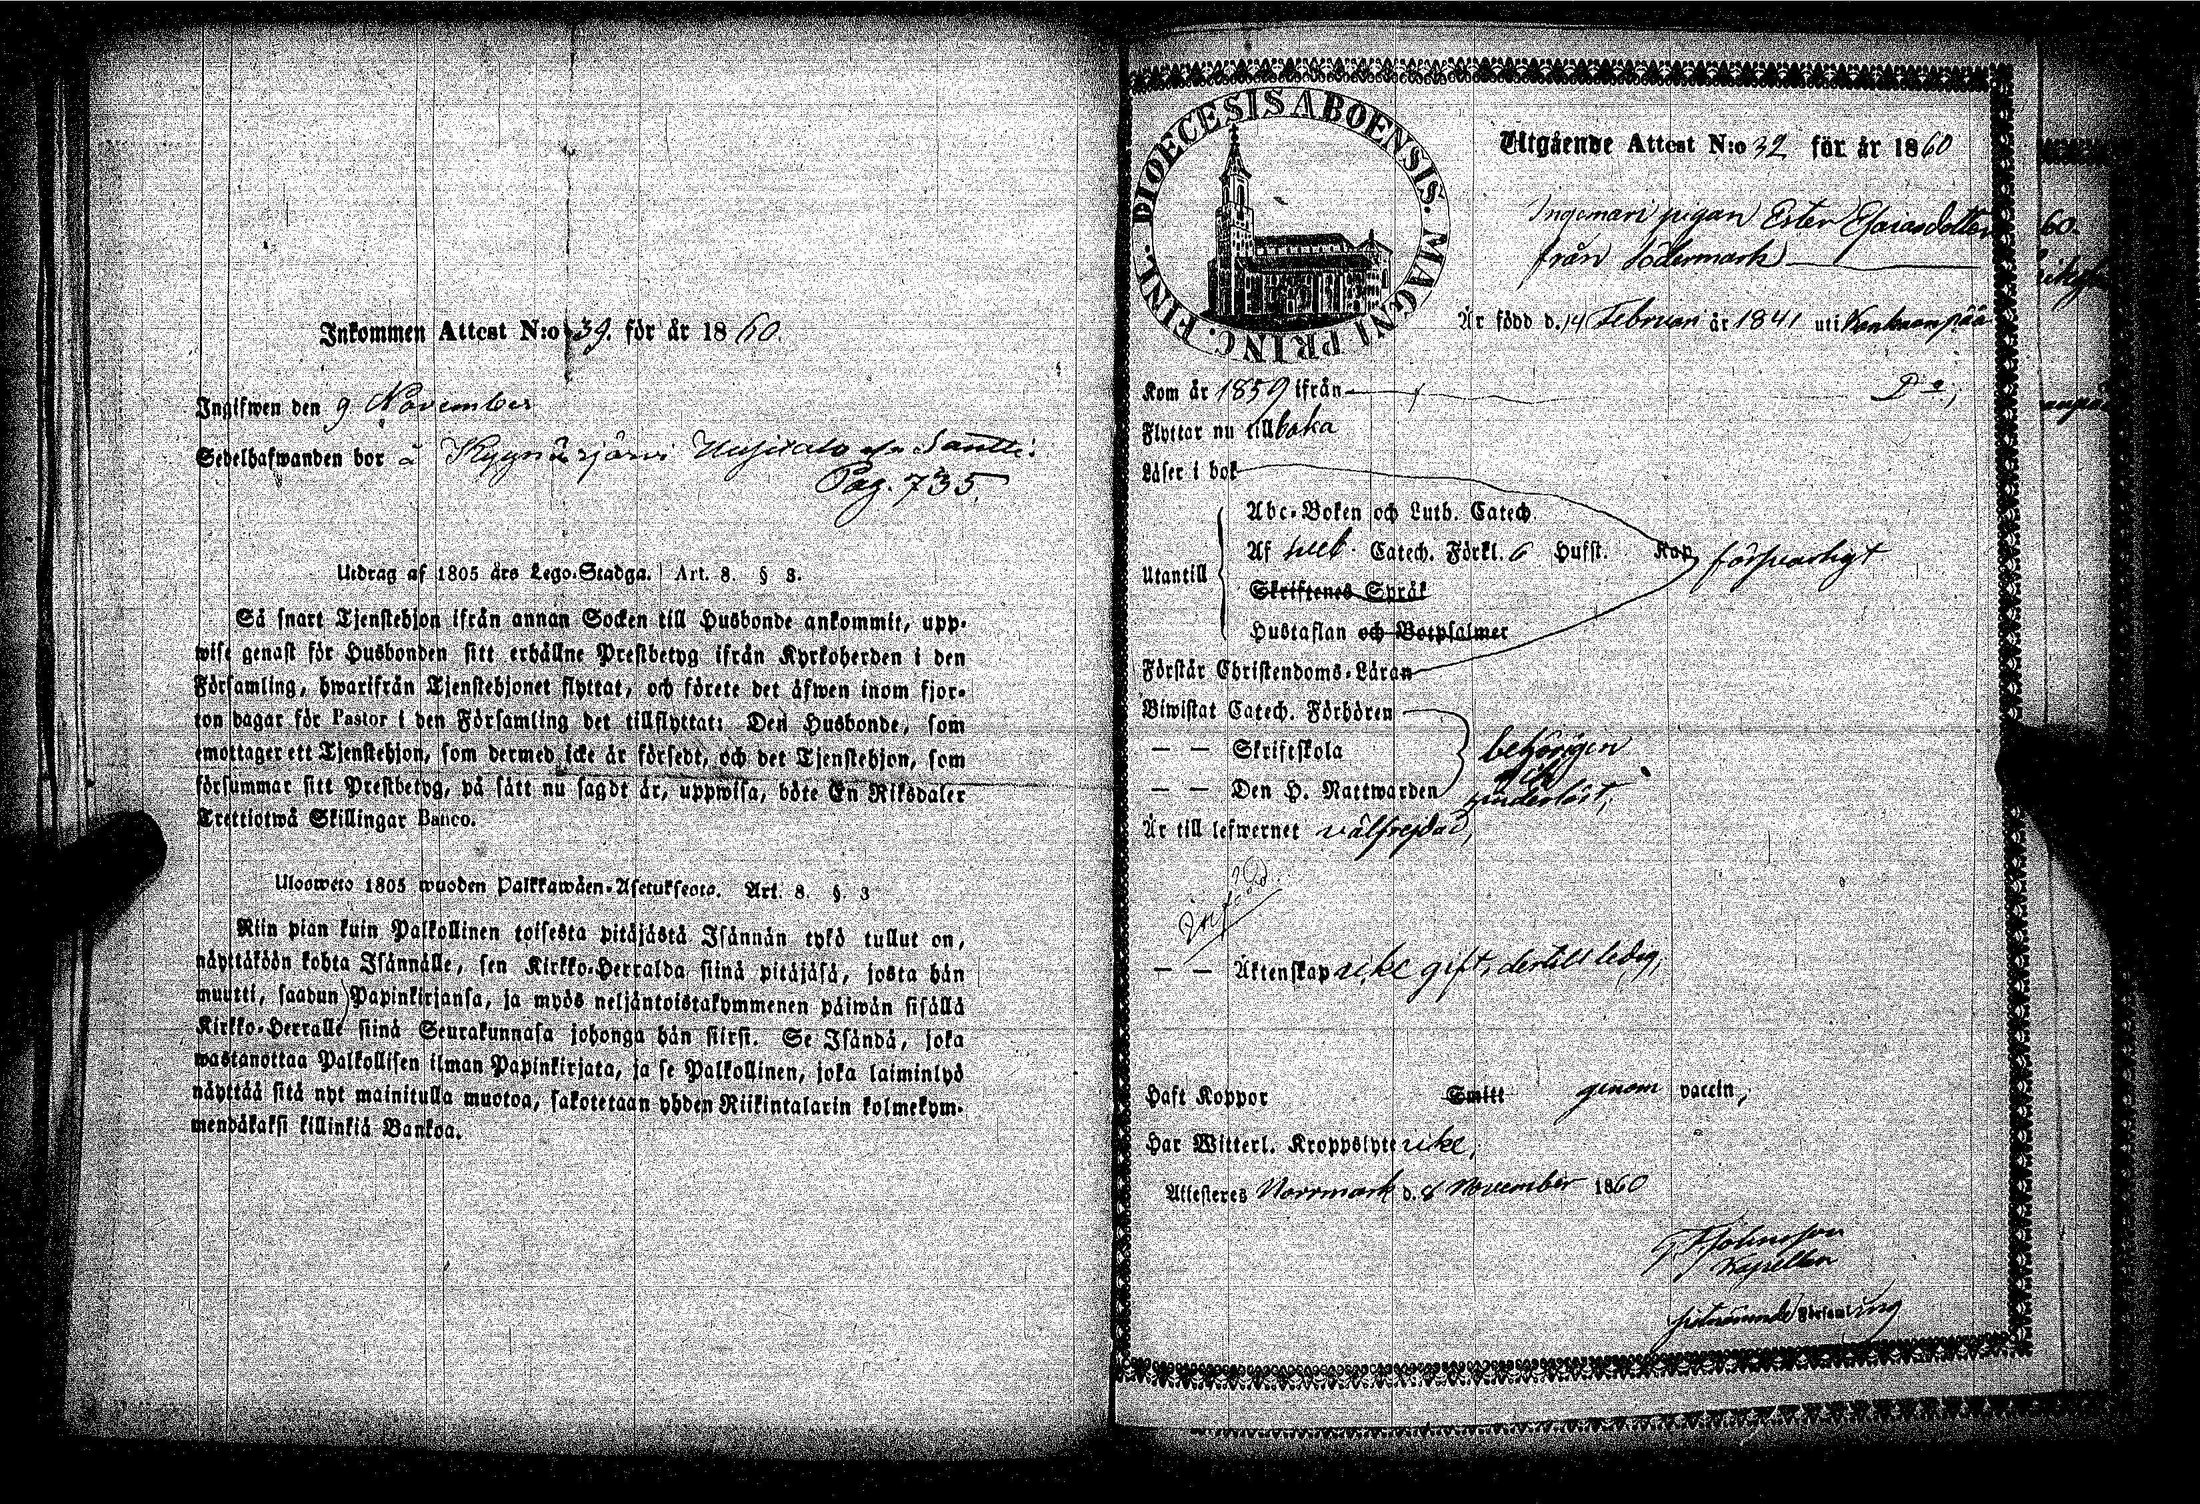 Inkommen Attest N:o 39. för år 1860.
Ingifwen den 9 November
Sedelhafwanden bor å Kyynärjärvi Uusitalo Santti:
Pag. 735.
Utdrag af 1805 års Lego-Stadga. Art. 8. § 3.
Så snart Tjenstehjon ifrån annan Socken till Husbonde ankommit, upp-
wise genast för Husbonden sitt erhållne Prestbetyg ifrån Kyrkoherden i den
Församling, hwarifrån Tjenstehjonet flyttat, och förete det äfwen inom fjor-
ton dagar för Pastor i den Församling det tillflyttat: Den Husbonde, som
emottager ett Tjenstehjon, som dermed icke är försedt, och det Tjenstehjon, som
försummar sitt Prestbetyg, på sätt nu sagdt är, uppwisa, böte En Riksdaler
Trettiotwå Skillingar Banco.
Ulosweto 1805 wuoden Palkkawäen-Asetuksesta. Art. 8. §. 3
Niin pian kuin Palkollinen toisesta pitäjästä Isännän tykö tullut on,
näyttäköön kohta Isännälle, sen Kirkko-Herralda siinä pitäjäsä, josta hän
muutti, saadun Papinkirjansa, ja myös neljäntoistakymmenen päiwän sisällä
Kirkko-Herralle siinä Seurakunnasa johonga hän siirsi. Se Isändä, joka
wastanottaa Palkollisen ilman Papinkirjata, ja se Palkollinen, joka laiminlyö
näyttää sitä nyt mainitulla muotoa, sakotetaan yhden Riikintalarin kolmekym-
mendäkaksi killinkiä Bankoa.
DIOECESIS ABOENSIS. MAGNI PRINC. FINL.
Utgående Attest N:o 32 för år 1860
Ingemari pigan Ester Esaiasdotter
från Södermark
Är född d. 14 Februari år 1841 uti Kankaanpää
Kom år 1859 ifrån D:o;
Flyttar nu tillbaka
Läser i bok
Abc-Boken och Luth. Catech.
Af Sveb. Catech. Förkl. 6 Hufst. Kap försvarligt
Utantill
Skriftenes Språk
Hustaflan och Botpsalmer
Förstår Christendoms-Läran
Biwistat Catech. Förhören
— — Skriftskola behörigen och
— — Den H. Nattwarden hinderlöst;
Är till lefwernet välfrejdad,
— — Äktenskap icke gift, dertill ledig,
Haft Koppor Smitt genom vaccin,
Har Witterl. Kroppslyte icke,
Attesteres Norrmark d. 8 November 1860
Johnsson
Kapellan